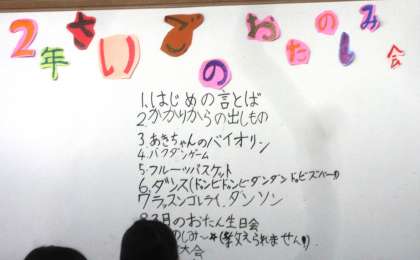 2年さいごのおたのしみ会
1.はじめの言とば
2.かかりからの出しもの
3.あきちゃんのバイオリン
4.バクダンゲーム
5.フルーツバスケット
6.ダンス(ドンピドンピダンダン
7.ラッスンゴレライ,ダンソン
8.3月のおたん生日会
しみ〜☆(教えられません!).
大会